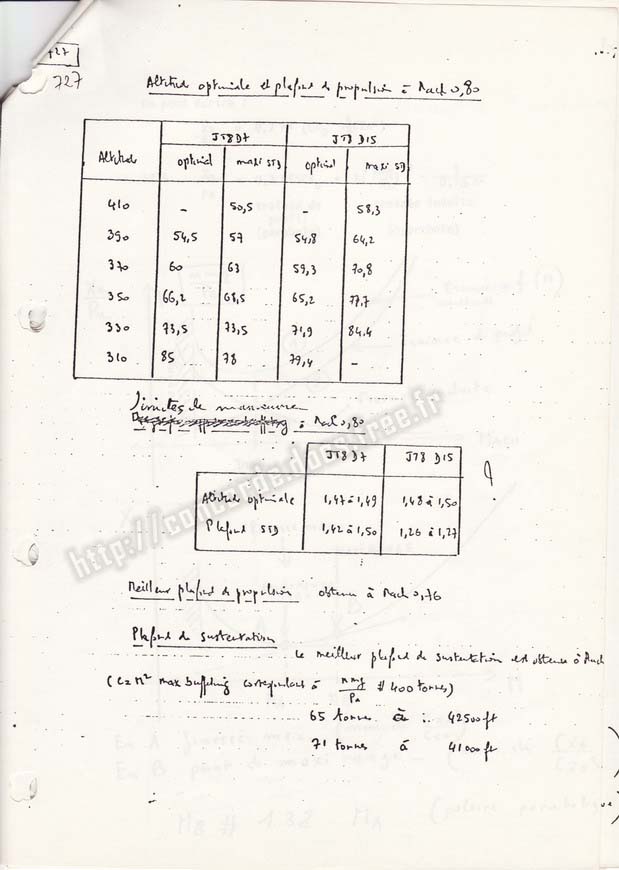 727
727
Altitude optimale et plafond de propulsion à Mach 0,80
JT8D7 JT8 D15
Altitude optimal maxi STD optimal maxi STD
410 - 50,5 - 58,3
390 54,5 57 54,8 64,2
370 60 63 59,3 70,8
350 66,2 68,5 65,2 77,7
330 73,5 73,5 71,9 84.4
310 85 78 79,4 -
Limites de manoeuvre
à Mach 0,80
JT8D7 JT8 D15
Altitude optimale 1,47 à 1,49 1,48 à 1,50
Plafond STD 1,42 à 1,50 1,26 à 1,27
?
Meilleur plafond de propulsion obtenu à Mach 0,76
Plafond de sustentation
Le meilleur plafond de sustentation est obtenu à Mach
(CzM² max buffeting correspondant à nmg/Pa # 400 tonnes)
65 tonnes à 42500 ft
71 tonnes à 41000 ft
http://concorde.docs.free.fr